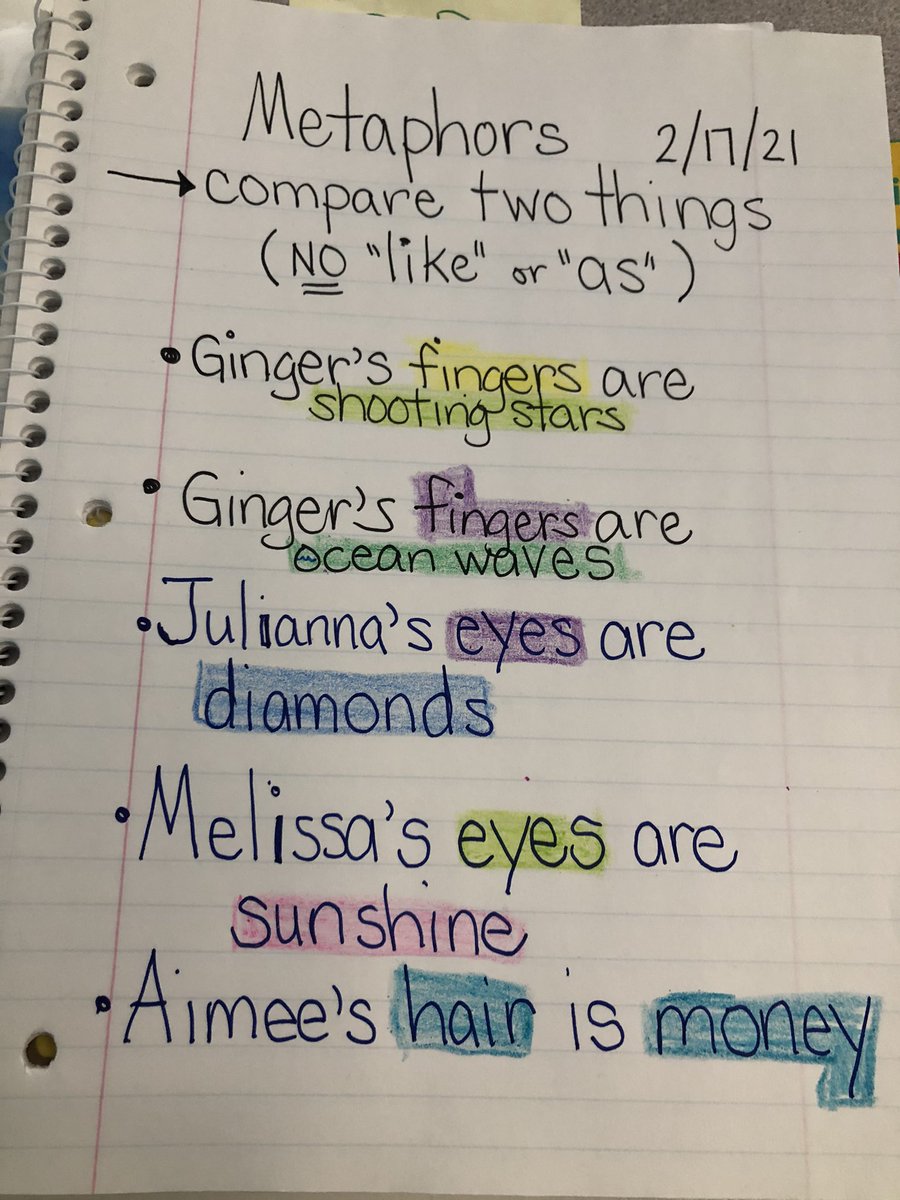 Metaphors 2/17/21
→ compare two things
(NO "like" or "as")
• Ginger's fingers are
shooting stars
• Ginger's fingers are
ocean waves
• Julianna's eyes are
diamonds
• Melissa's eyes are
sunshine
• Aimee's hair is money